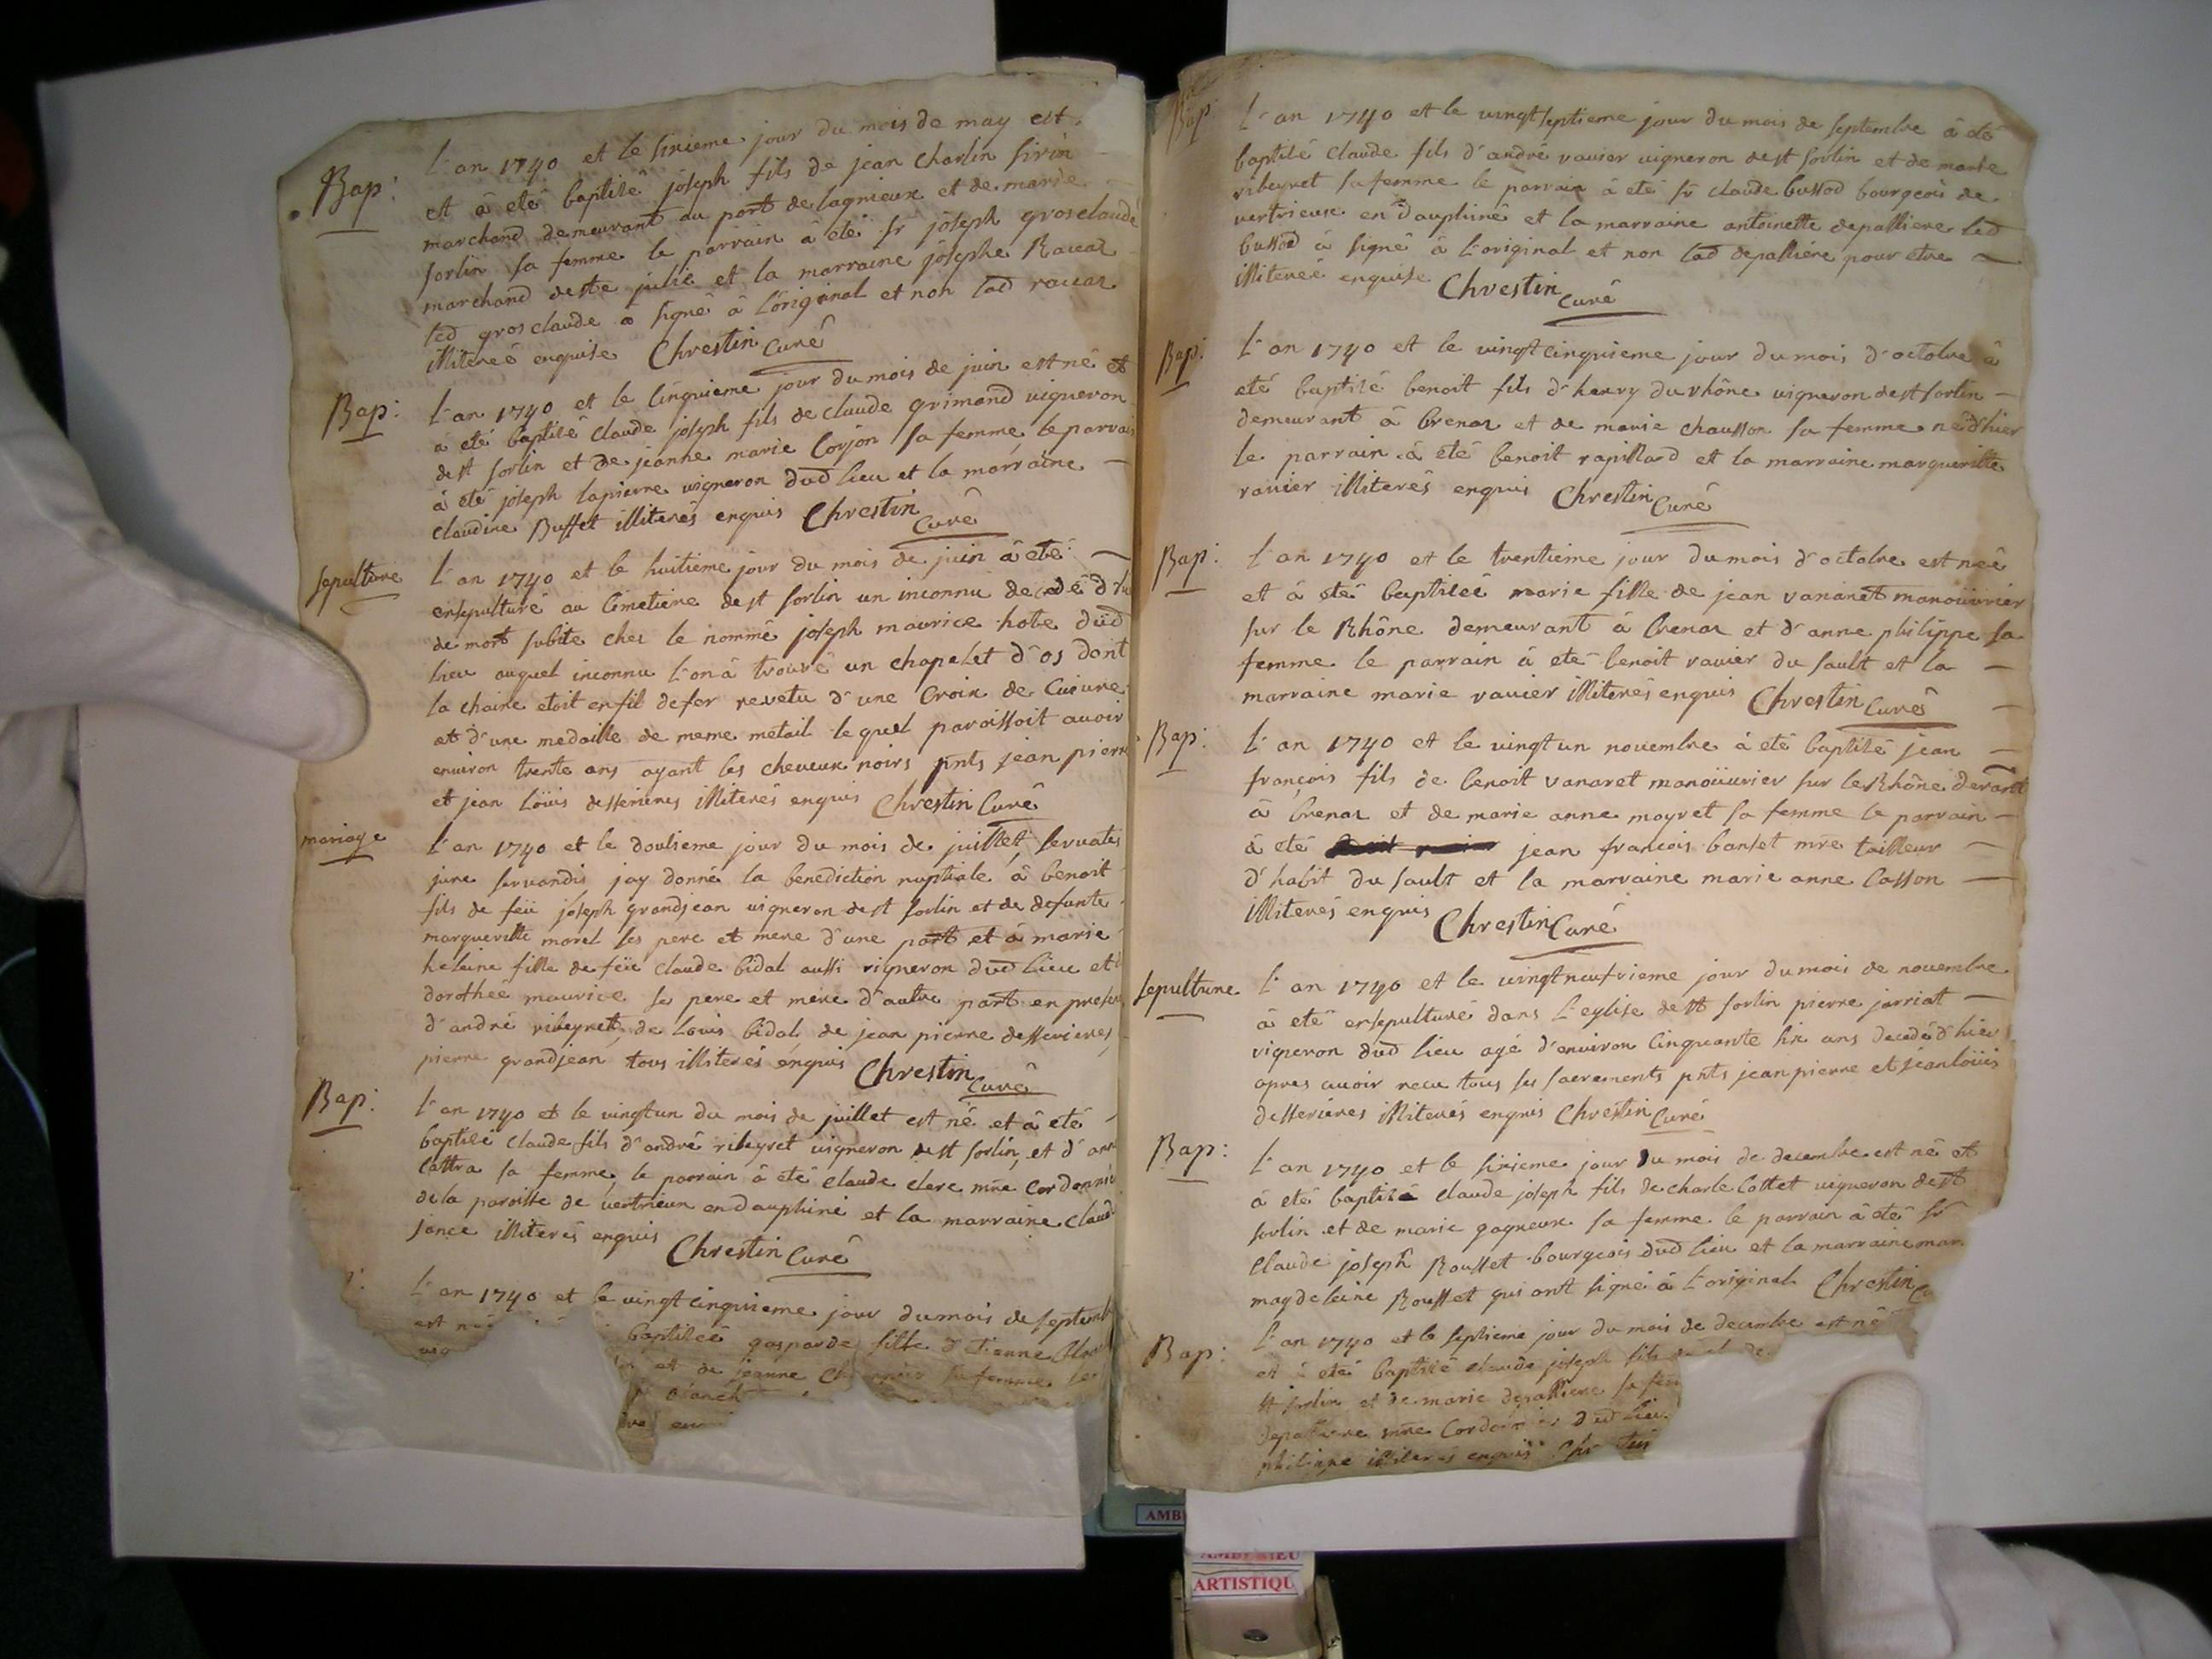 Bap:
L'an 1740 et le sixieme jour du mois de may est
et à eté baptisé joseph fils de jean charlin sirin
marchand demeurant au port de lagnieux et de marie
sorlin sa femme le parrain à eté sr joseph grosclaude
marchand deste julie et la marraine josephe Ravat
led grosclaude a signé à l'original et non lad ravat
illitereé enquise Chrestin Curé
Bap:
L'an 1740 et le Cinquieme jour du mois de juin est né et
a eté baptisé claude joseph fils de claude grimand vigneron
de st sorlin et de jeanne marie Corjon sa femme le parrain
à eté joseph lapierre vigneron dud lieu et la marraine
claudine Buffet illiterés enquis Chrestin Curé
sepulture
L'an 1740 et le huitieme jour du mois de juin à eté
ensepulturé au Cimetiere de st sorlin un inconnu decedé d'hier
de mort subite chez le nommé joseph maurice hote dud
lieu auquel inconnu l'on à trouvé un chapelet d'os dont
la chaine etoit en fil de fer revetu d'une Croix de Cuivre
et d'une medaille de meme metail lequel paroissoit avoir
environ trente ans ayant les cheveux noirs pnts jean pierre
et jean loüis desserieres illiterés enquis Chrestin Curé
mariage
L'an 1740 et le doulsieme jour du mois de juillet servatis
jure servandis jay donné la benediction nuptiale à benoit
fils de feü joseph grandjean vigneron de st sorlin et de defunte
marguerite morel ses pere et mere d'une part et à marie
heleine fille de feü claude bidal aussi vigneron dud lieu et
dorotheé maurice ses pere et mere d'autre part en presen
d'andré ribeyret, de louis bidal, de jean pierre desserieres,
pierre grandjean tous illiterés enquis Chrestin Curé
Bap:
L'an 1740 et le vingtun du mois de juillet est né et à eté
baptisé claude fils d'andré ribeyret vigneron de st sorlin, et d'ann
Cattra sa femme, le parrain à eté claude clerc mre Cordonnie
de la paroisse de vertrieux en dauphiné et la marraine claud
jance illiterés enquis Chrestin Curé
L'an 1740 et le vingt cinquieme jour du mois de septemb
est neé baptiseé gasparde fille d'etienne
et de jeanne sa femme le
Bap
L'an 1740 et le vingt septieme jour du mois de septembre à eté
baptisé claude fils d'andré ravier vigneron de st sorlin et de marie
ribeyret sa femme le parrain à eté sr claude bussod bourgeois de
vertrieux en dauphiné et la marraine antoinette depalliere led
bussod à signé à l'original et non lad depalliere pour etre
illitereé enquise Chrestin Curé
Bap:
L'an 1740 et le vingt cinquieme jour du mois d'octobre à
eté baptisé benoit fils d'henry du rhône vigneron de st sorlin
demeurant à brenaz et de marie chausson sa femme né d'hier
le parrain à eté benoit rapillard et la marraine marguerite
ravier illiterés enquis Chrestin Curé
Bap:
L'an 1740 et le trentieme jour du mois d'octobre est neé
et à eté baptiseé marie fille de jean vanaret manoüvrier
sur le Rhône demeurant à brenaz et d'anne philippe sa
femme le parrain à eté benoit ravier du sault et la
marraine marie ravier illiterés enquis Chrestin Curé
Bap:
L'an 1740 et le vingt un novembre à eté baptisé jean
françois fils de benoit vanaret manoüvrier sur le Rhône demant
à brenaz et de marie anne moyret sa femme le parrain
à eté jean francois banset mre tailleur
d'habit du sault et la marraine marie anne Casson
illiterés enquis Chrestin Curé
sepulture
L'an 1740 et le vingt neufvieme jour du mois de novembre
à eté ensepulturé dans l'eglise de st sorlin pierre jarriat
vigneron dud lieu agé d'environ Cinquante six ans decedé d'hier
apres avoir recu tous ses sacrements pnts jean pierre et jean loüis
desserieres illiterés enquis Chrestin Curé
Bap:
L'an 1740 et le sixieme jour du mois de decembre est né et
à eté baptisé claude joseph fils de charle Cottet vigneron de st
sorlin et de marie gagneux sa femme le parrain à eté sr
claude joseph Rousset bourgeois dud lieu et la marraine mar
magdeleine Rousset qui ont signé à l'original Chrestin Cu
Bap:
L'an 1740 et le septieme jour du mois de decembre est né
et à eté baptisé claude joseph fils
st sorlin et de marie depalliere sa fem
depalliere mre Cordonnier dud lieu
philippe illiterés enquis
AMB
ARTISTIQU